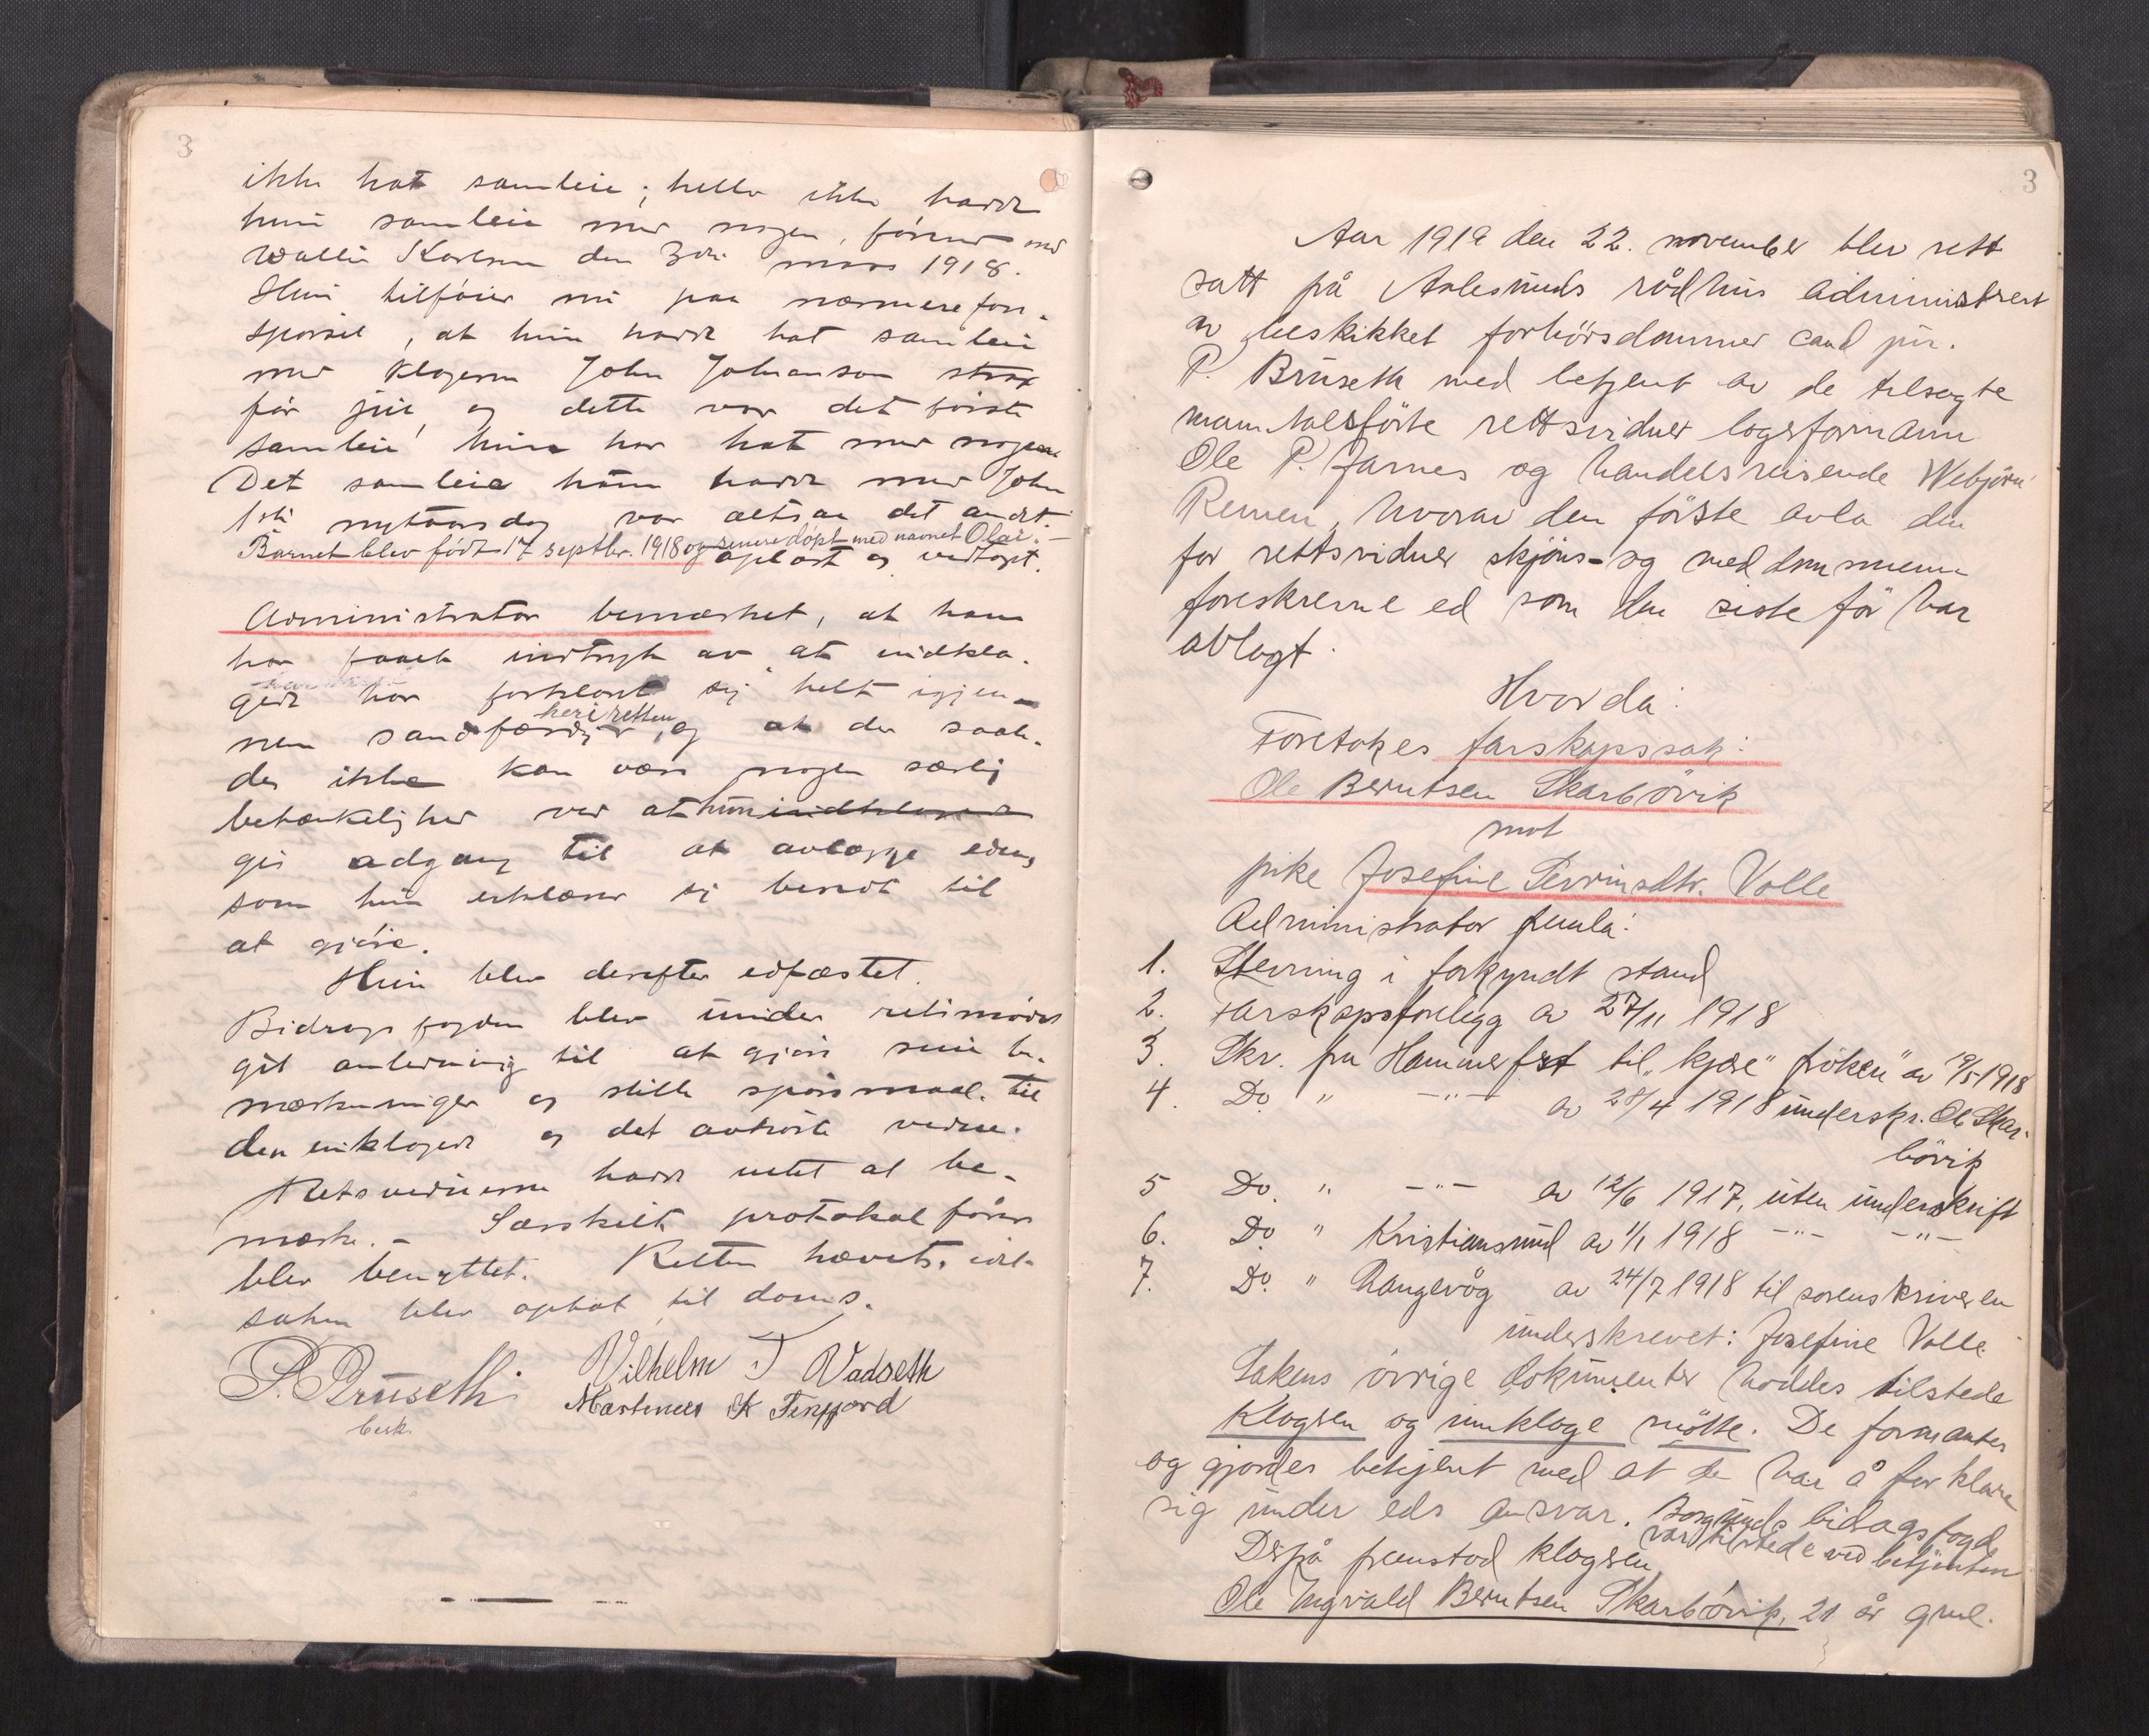 3
ikke hat samleie; heller ikke hadde
hun samleie med nogen, förend med
Wallin Karlsen den 3die mars 1918.
Hun tilföier nu paa nærmere fore-
spörsel, at hun hadde hat samleie
med klageren John Johansen strax
för jul, og dette var det förste
samleie hun har hat med nogen.
Det samleie hun hadde med John
1ste nytaarsdag var altsaa det andet.
Barnet blev födt 17 septbr. 1918 og senere döpt med navnet Olai. –
Oplæst og vedtaget.
Administrator bemerket, at han
har faaet indtryk av at indkla-
gede har forklaret sig helt igjen-
nem sandfærdig her i retten, og at der saale-
des ikke kan være nogen særlig
betænkelighed ved at hun indklagede
gis adgang til at avlægge eden,
som hun erklærer sig beredt til
at gjöre.
Hun blev derefter edfæstet.
Bidragsfogden blev under retsmödet
git anledning til at gjöre sine be-
merkninger og stille spörsmaal til
den inklagede og det avhörte vidne.
Retsvidnerne hadde intet at be-
merke. – Særskilt protokol förer
blev benyttet. Retten hævet, idet
saken blev optat til doms.
P. Bruseth Vilhelm T Vadseth
besk. Martinus K Tenfjord
3
Aar 1919 den 22. november blev rett
satt på Aalesunds rådhus administrert
av beskikket forhörsdommer cand jur.
P. Bruseth med betjent av de tilsagte
mantalsförte rettsvidner lagsformann
Ole P. Garnes og handelsreisende Webjörn
Remen, hvorav den förste avla den
for rettsvidner skjöns- og meddommenn
foreskrevne ed som den siste för har
avlagt.
Hvorda:
Foretokes farskapssak:
Ole Berntsen Skarbövik
mot
pike Josefine Sevrinsdtr. Valle
Administrator fremla:
1. Stevning i forkyndt stand
2. Farskapsforelegg av 27/11 1918
3. Skr. fra Hammerfest til „kjære fröken" av 19/5 1918
4. Do. " –"– av 28/4 1918 underskr. Ole Skar-
bövik
5 Do. " –"– av 12/6 1917, uten underskrift
6. Do " Kristiansund av 1/1 1918 –"– –"–
7. Do. " Langevåg av 24/7 1918 til sorenskriveren
underskrevet: Josefine Valle.
Sakens övrige dokumenter haddes tilstede
Klageren og innklage mötte. De formantes
og gjordes bekjent med at de har å forklare
sig under eds ansvar. Borgunds bidragsfogd
var tilstede ved betjenten
Derpå fremstod klageren
Ole Ingvald Berntsen Skarbövik, 21 år gml.